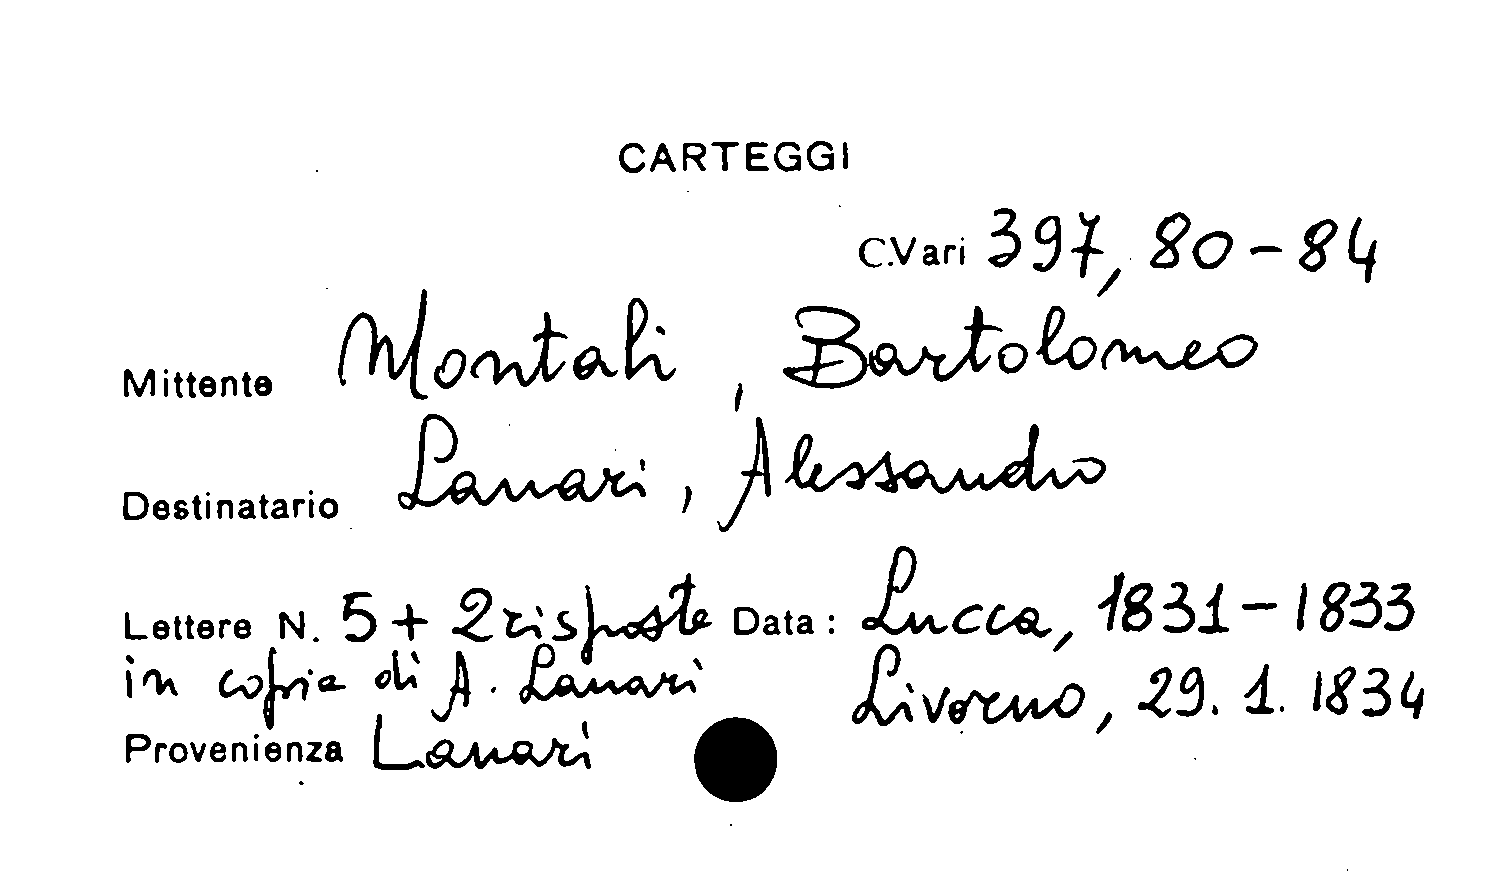 CARTEGGI
C.Vari 397, 80-84
Mittente Montali, Bartolomeo
Destinatario Lanari, Alessandro
Lettere N. 5 + 2 risposte Data: Lucca, 1831-1833
in copia di A. Lanari Livorno, 29. 1. 1834
Provenienza Lanari